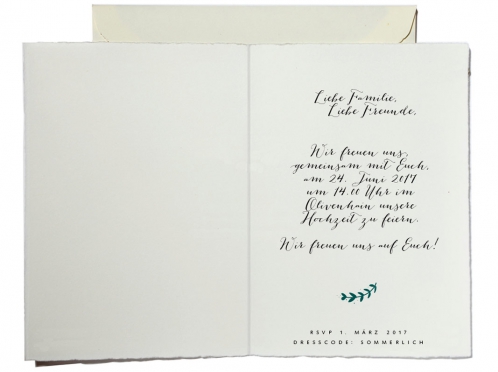 Liebe Familie,
Liebe Freunde,
Wir freuen uns,
gemeinsam mit Euch,
am 24. Juni 2017
um 14.00 Uhr im
Olivenhain unsere
Hochzeit zu feiern.
Wir freuen uns auf Euch!
RSVP 1. MÄRZ 2017
DRESSCODE: SOMMERLICH